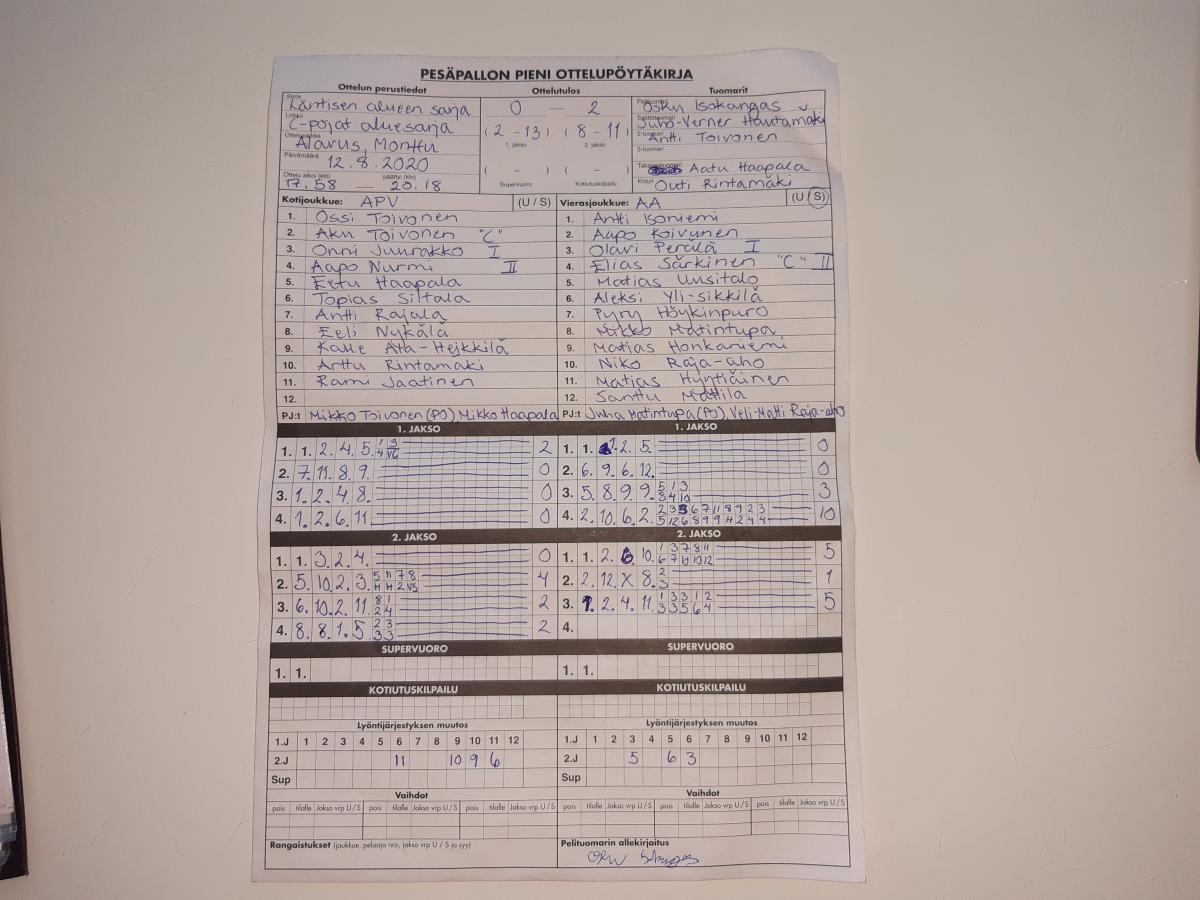 PESÄPALLON PIENI OTTELUPÖYTÄKIRJA
Ottelun perustiedot Ottelutulos Tuomarit
Sarja Läntisen alueen sarja
Lohko C-pojat aluesarja
Ottelupaikka Alavus, Monttu
Päivämäärä 12.8.2020
Ottelu alkoi (klo) 17.58 — päättyi (klo) 20.18
0 — 2
(2 - 13) (8 - 11)
1. jakso 2. jakso
( - ) ( - )
Supervuoro Kotiutuskilpailu
Pelituomari Isokangas
Juho-Verner Hautamäki
2-tuomari Antti Toivonen
3-tuomari
Takarajatuomari Aatu Haapala
Kirjuri Outi Rintamäki
Kotijoukkue: APV (U / S)
1. Ossi Toivonen
2. Aku Toivonen "C"
3. Onni Juurakko I
4. Aapo Nurmi II
5. Eetu Haapala
6. Topias Siltala
7. Antti Rajala
8. Eeli Nykälä
9. Kalle Ala-Heikkilä
10. Arttu Rintamäki
11. Rami Jaatinen
12.
PJ:t Mikko Toivonen (PO), Mikko Haapala
Vierasjoukkue: AA (U / S)
1. Antti Isoniemi
2. Aapo Koivunen
3. Olavi Perälä I
4. Elias Särkinen "C" II
5. Matias Uusitalo
6. Aleksi Yli-sikkilä
7. Pyry Höykinpuro
8. Mikko Matintupa
9. Matias Honkaniemi
10. Niko Raja-aho
11. Matias Hyytiäinen
12. Santtu Mattila
PJ:t Juha Matintupa (PO), Veli-Matti Raja-aho
1. JAKSO
1. 1. 2. 4. 5. 2
2. 7. 11. 8. 9. 0
3. 1. 2. 4 8. 0
4. 1. 2. 6. 11 0
1. JAKSO
1. 1. 2. 5. 0
2. 6. 9. 6. 12. 0
3. 5. 8. 9. 9. 5 1 3 3
8 4 10
4. 2. 10. 6. 2. 10
2. JAKSO
1. 1. 3. 2. 4. 0
2. 5. 10. 2. 3. 5 11 7 8 4
3. 6. 10. 2. 11. 8 1 2
2 4
4. 8. 8. 1. 5 2 3 2
3 3
2. JAKSO
1. 1. 2. 6. 10. 1 3 7 8 11 5
6 7 10 10 12
2. 2. 12. X 8. 2 1
3
3. 1. 2. 4. 11. 1 3 3 1 2 5
3 3 5 6 4
4.
SUPERVUORO SUPERVUORO
1. 1. 1. 1.
KOTIUTUSKILPAILU KOTIUTUSKILPAILU
Lyöntijärjestyksen muutos
1.J 1 2 3 4 5 6 7 8 9 10 11 12
2.J 11 10 9 6
Sup
Lyöntijärjestyksen muutos
1.J 1 2 3 4 5 6 7 8 9 10 11 12
2.J 5 6 3
Sup
Vaihdot Vaihdot
pois tilalle Jakso vrp U / S pois tilalle Jakso vrp U / S pois tilalle Jakso vrp U / S
pois tilalle Jakso vrp U / S pois tilalle Jakso vrp U / S pois tilalle Jakso vrp U / S
Rangaistukset (joukkue, pelaaja nro, jakso vrp U / S ja syy)
Pelituomarin allekirjoitus